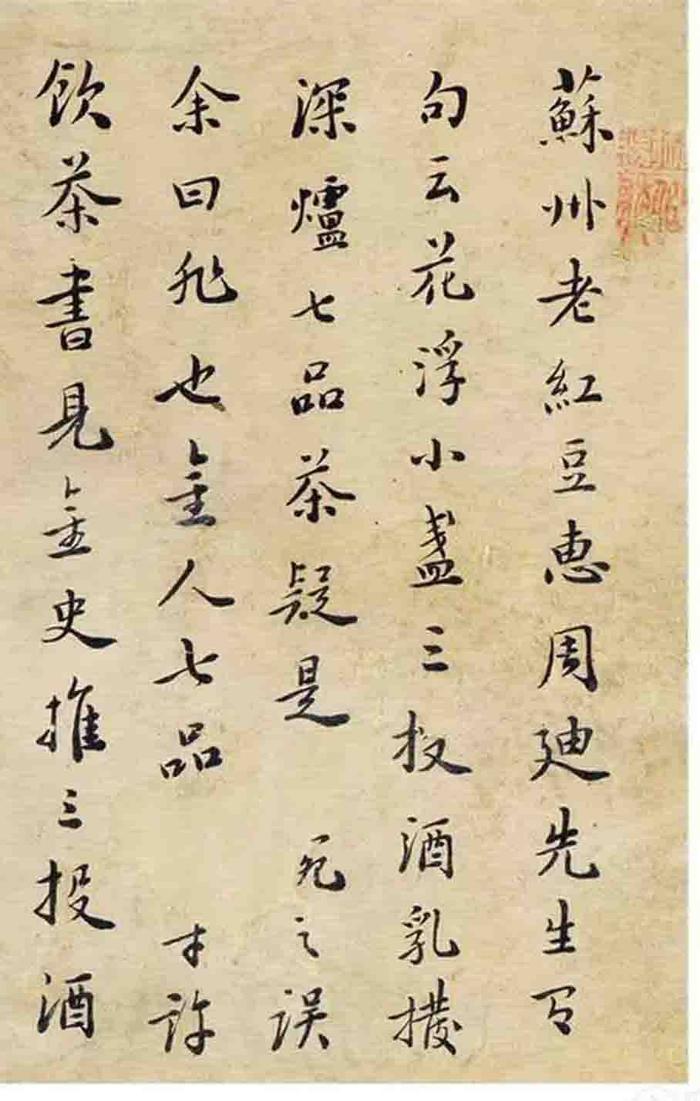 蘇州老紅豆恵周廸先生
句云花浮小盞三投酒乳撥
深爐七品茶疑是之誤
余曰非也金人七品才許
飲茶書見金史推三投酒